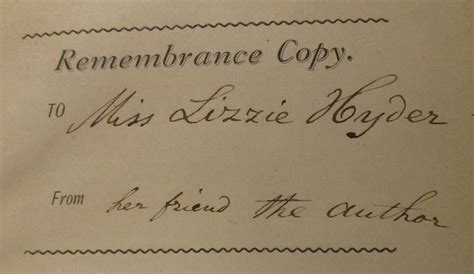 Remembrance Copy.
TO Miss Lizzie Hyder
From her friend the author